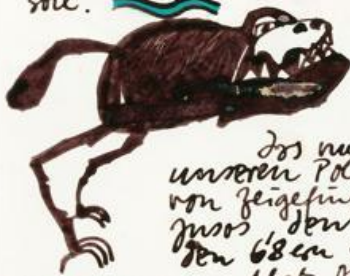 soll.
das nu
unseren Pol
von Zeigefin
Jusos, den
den 68ern